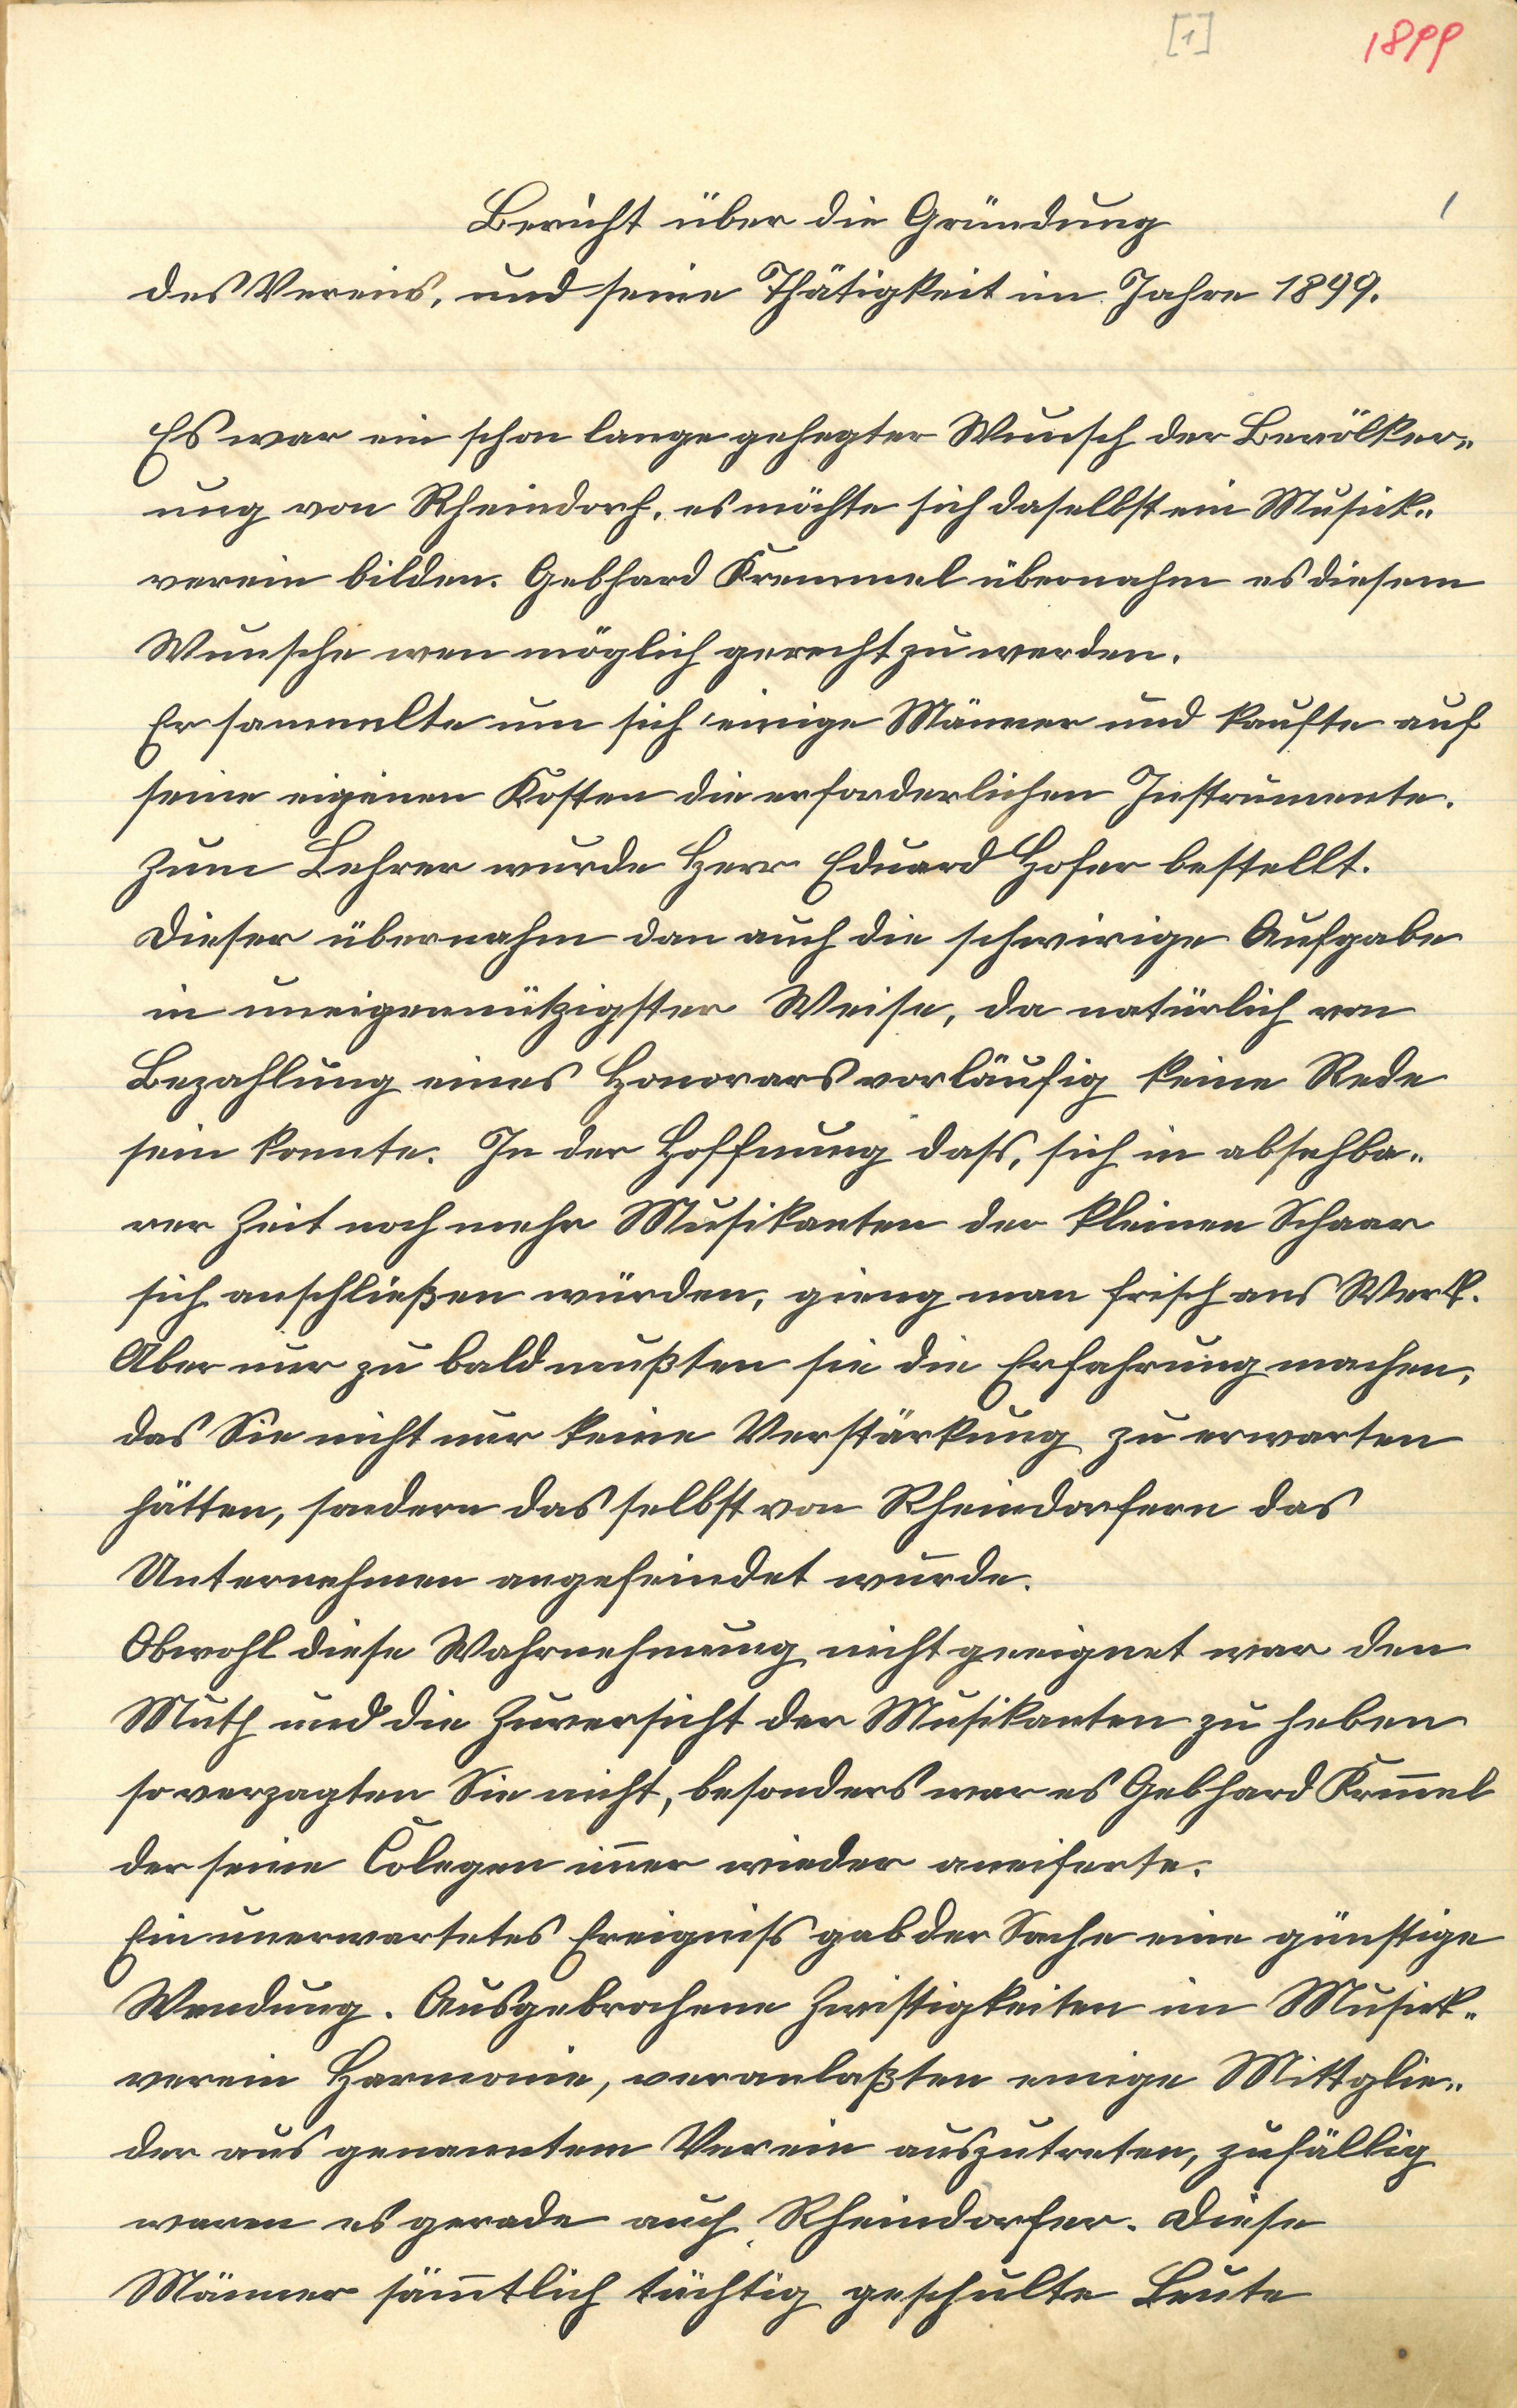 [1]
1899
1
Bericht über die Gründung
des Vereins, und seine Thätigkeit im Jahre 1899.
Es war ein schon lange gehegter Wunsch der Bevölker„
ung von Rheindorf, es möchte sich daselbst ein Musick„
verein bilden. Gebhard Kremmel übernahm es diesem
Wunsche wen möglich gerecht zu werden.
Er sammelte um sich einige Männer und kaufte auf
seine eigenen Kosten die erforderlichen Instrumente.
Zum Lehrer wurde Herr Eduard Hofer bestellt.
Dieser übernahm dan auch die schwirige Aufgabe
in uneigennützigster Weise, da natürlich von
Bezahlung eines Honorars vorläufig keine Rede
sein konnte. In der Hoffnung dass, sich in absehba„
rer Zeit noch mehr Musikanten der kleinen Schaar
sich anschließen würden, gieng man frisch ans Werk.
Aber nur zu bald mußten sie die Erfahrung machen,
das Sie nicht nur keine Verstärkung zu erwarten
hätten, sondern das selbst von Rheindorfern das
Unternehmen angefeindet wurde.
Obwohl diese Wahrnehmung nicht geeignet war den
Muth und die Zuversicht der Musikanten zu heben
so verzagten Sie nicht, besonders war es Gebhard Krem̅el
der seine Colegen im̅er wieder aneiferte.
Ein unerwartetes Ereigniss gab der Sache eine günstige
Wendung. Ausgebrochene Zwistigkeiten im Musick„
verein Harmonie, veranlaßten einige Mittglie„
der aus genanntem Verein auszutreten, zufällig
waren es gerade auch Rheindorfer. Diese
Männer säm̅tlich tüchtig geschulte Leute